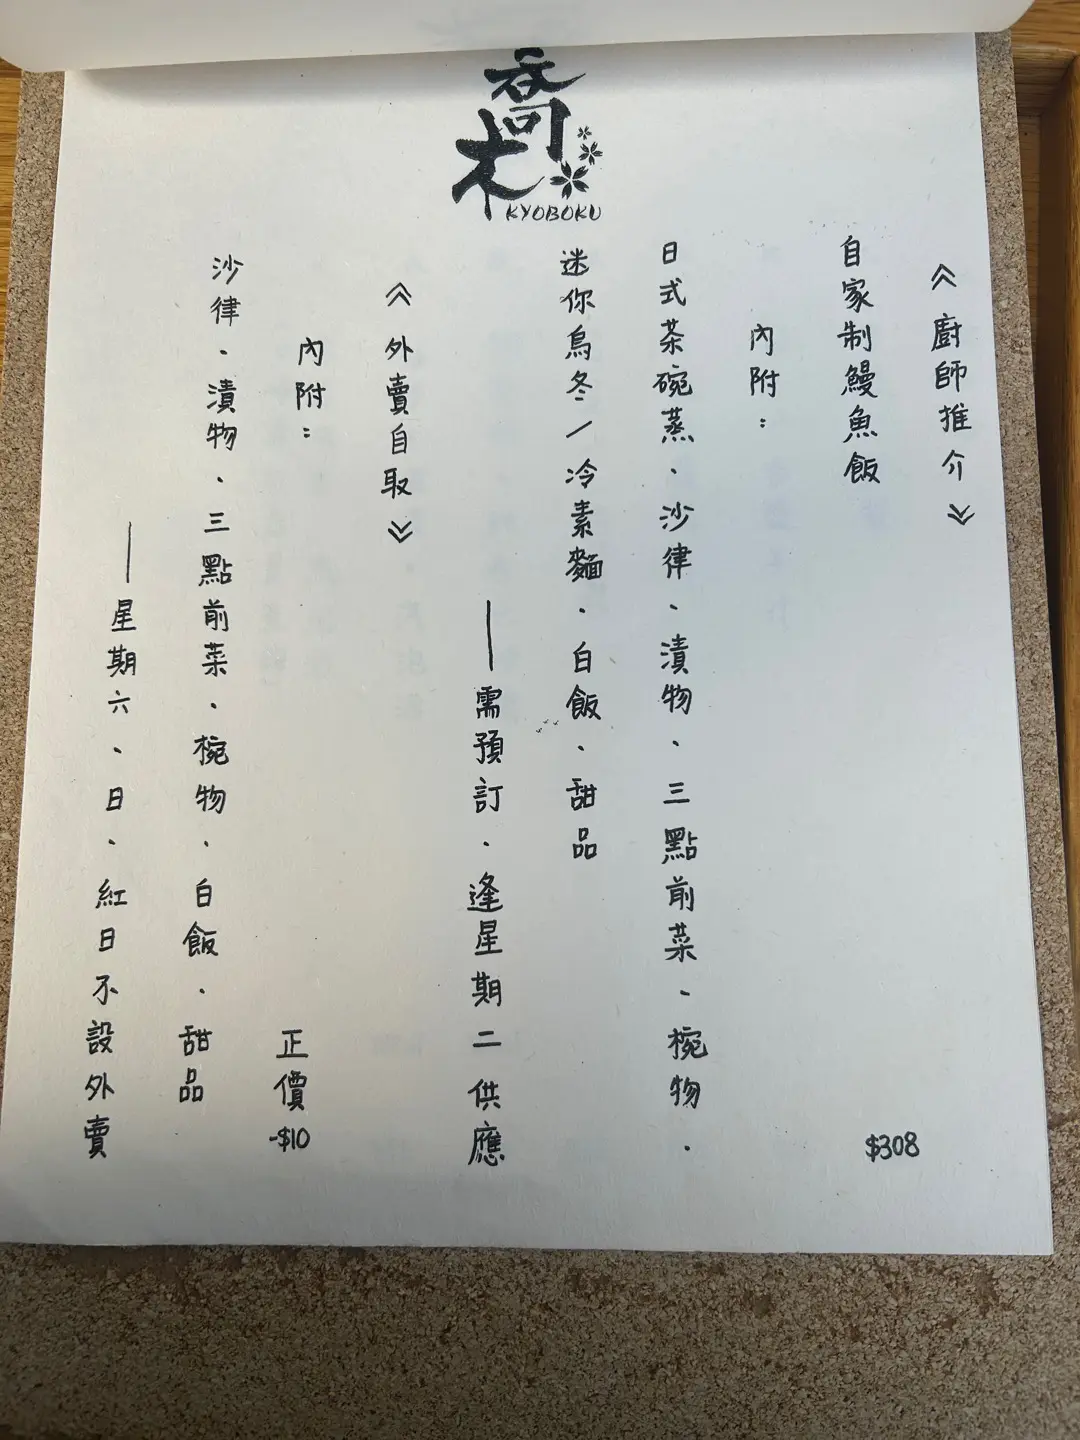 喬木
KYOBOKU
《廚師推介》
自家制鰻魚飯
$308
內附：
日式茶碗蒸、沙律、漬物、三點前菜、椀物、
迷你烏冬/冷素麵、白飯、甜品
—需預訂、逢星期二供應
《外賣自取》
內附：
正價-$10
沙律、漬物、三點前菜、椀物、白飯、甜品
—星期六、日、紅日不設外賣